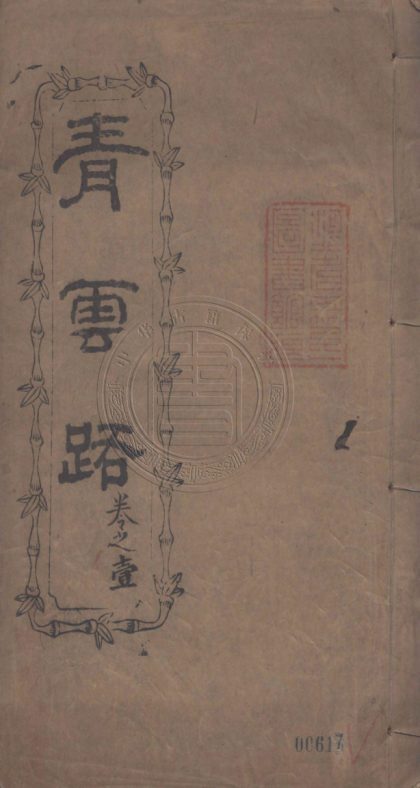 青雲路
卷之壹
1
00617